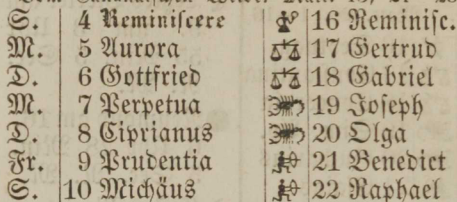 S. 4 Reminiſcere 16 Reminiſc.
M. 5 Aurora 17 Gertrud
D. 6 Gottfried 18 Gabriel
M. 7 Perpetua 19 Joſeph
D. 8 Ciprianus 20 Olga
Fr. 9 Prudentia 21 Benedict
S. 10 Michäus 22 Raphael